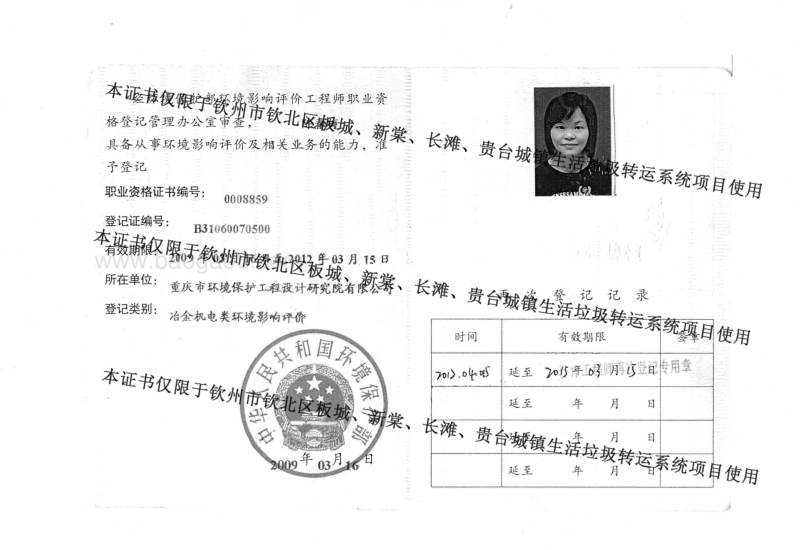 环境保护部环境影响评价工程师职业资
格登记管理办公室审查，
具备从事环境影响评价及相关业务的能力，准
予登记
职业资格证书编号： 0008859
登记证编号： B31060070500
有效期限： 2009年03月16日至2012年03月15日
所在单位： 重庆市环境保护工程设计研究院有限公司
登记类别： 冶金机电类环境影响评价
中华人民共和国环境保护部
2009 年 03 月 16 日
再次登记记录
时间 有效期限 签章
2012.04.05 延至 2015年03月15日
延至 年 月 日
延至 年 月 日
延至 年 月 日
本证书仅限于钦州市钦北区板城、新棠、长滩、贵台城镇生活垃圾转运系统项目使用
本证书仅限于钦州市钦北区板城、新棠、长滩、贵台城镇生活垃圾转运系统项目使用
本证书仅限于钦州市钦北区板城、新棠、长滩、贵台城镇生活垃圾转运系统项目使用